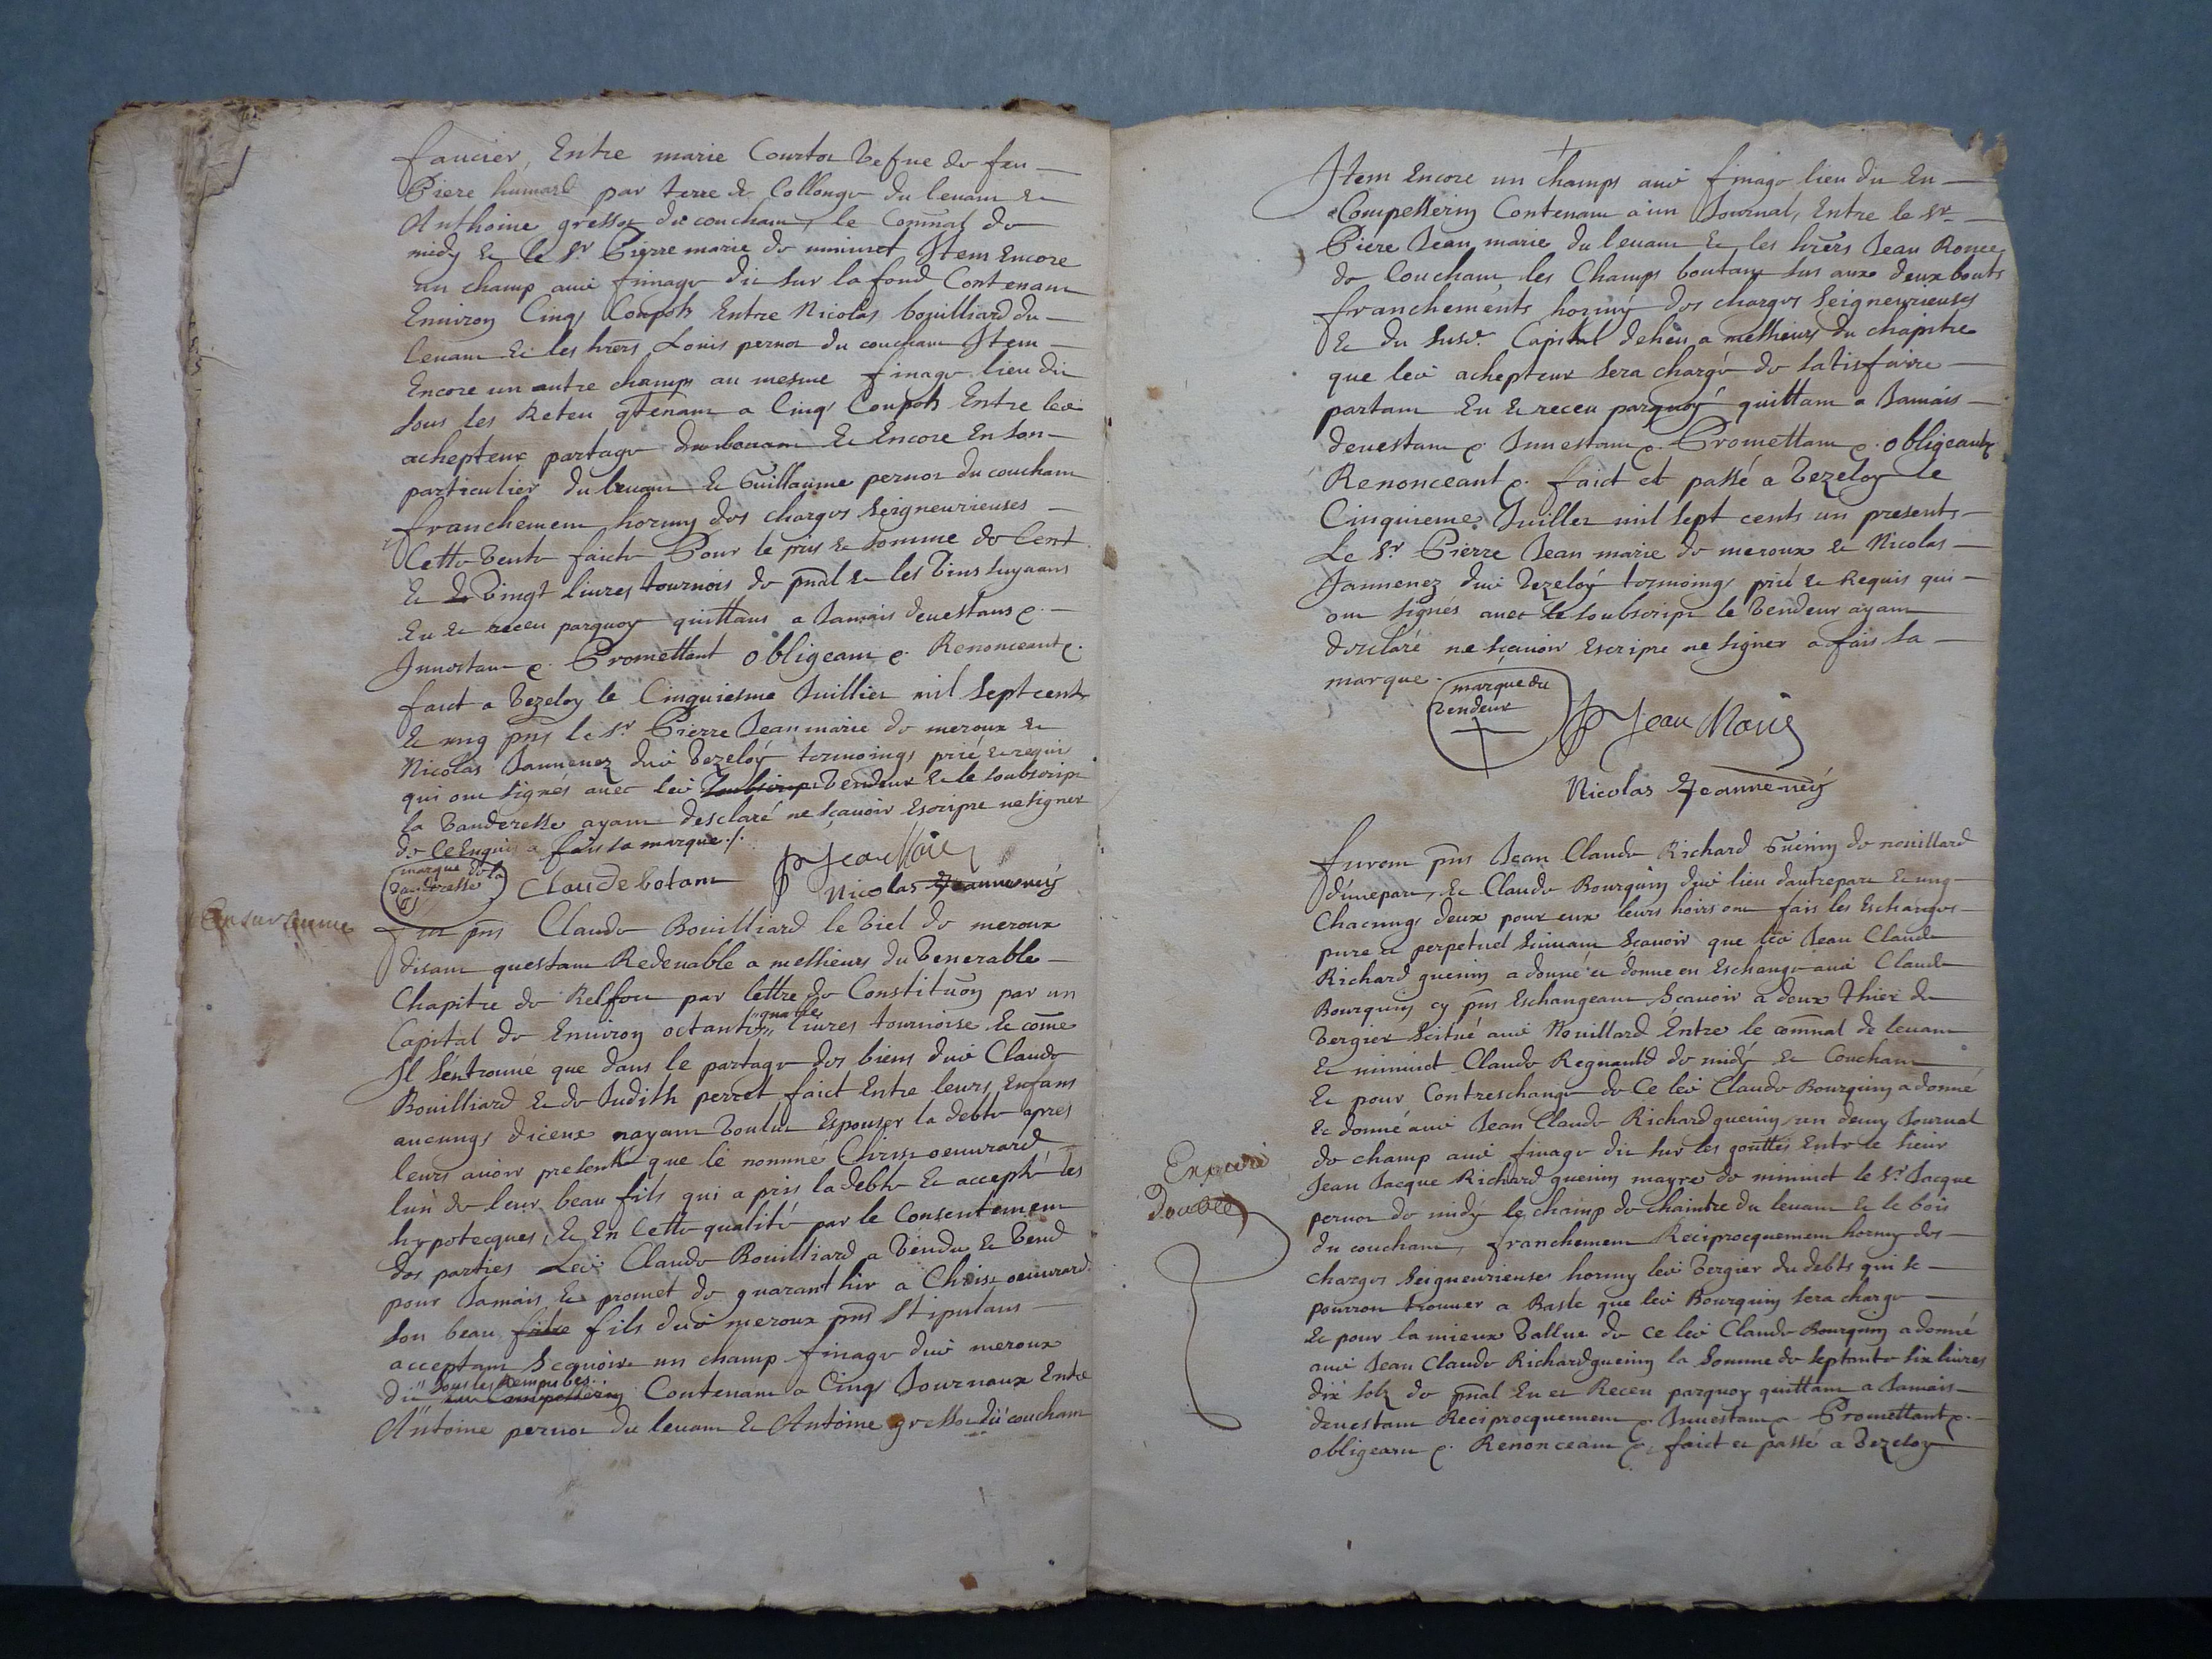 faucier, Entre marie Courtot vefue de feu
Piere humard par terre de Collonge du leuant Et
Anthoine gressot du couchant, le Comnal de
midy Et le Sr Pierre marie de minuict Item Encore
un champ aud finage dit sur la fond Contenant
Enuiron Cinqs Coupots Entre Nicolas bouilliard du
leuant Et les hrers Louis pernot du couchant Item
Encore un autre champs au mesme finage lieu dit
sous les Reteu qtenant a Cinqs Coupots Entre led
achepteur partage du leuant Et Encore En son
particulier du leuant Et Guillaume pernot du couchant
franchement hormy des charges seigneurieuses
Cette vente faicte Pour le pris et somme de Cent
Et de vingt liures tournois de pnal et les vins suyuans
Eu Et receu parquoy quittans a Jamais deuestans &.
Inuestant &. Promettant obligeant &. Renonceant &.
faict a Vezeloy le Cinquiesme Juillier mil sept cents
Et ung pns le Sr Pierre Jean marie de meroux Et
Nicolas Jannenez dud Vezeloy tesmoings prié Et requi
qui ont signés auec led soubscript vendeur Et le soubscript
la vanderesse ayant desclaré ne sçauoir Escripre ne signer
de ce Enquis a fais sa marque ./.
marque de la
vanderesse
Claude botant
P Jean Marie
Nicolas Jeannerney
fut pns Claude Bouilliard le viel de meroux
disant questant Redeuable a messieurs du Venerable
Chapitre de Belfort par lettre de Constituon par un
Capital de Enuiron octante quattre liures tournoise Et come
Il sentrouué que dans le partage des biens dud Claude
Bouilliard Et de Judith perret faict Entre leurs Enfans
aucungs diceux nayant voulu Espouser la debte apres
leurs auoir presenté que le nommé Christ oeuurard
lun de leur beau fils qui a pris la debte Et accepté les
hypotecques, Et En cette qualité par le Consentement
des parties Led Claude Bouilliard a vendu Et vend
pour Jamais Et promet de guaranthir a Christ oeuurard
son beau filse fils dud meroux pns stipulans
acceptant Scauoir un champ finage dud meroux
dit sous les En Compesserin Contenant a Cinqs Journaux Entre
Antoine pernot du leuant Et Antoine gressot du couchant
Item Encore un champs aud finage lieu dit En
Compesserin Contenant a un Journal, Entre le Sr
Piere Jean marie du leuant Et les hrers Jean
de Couchant les Champs boutant sus aux deux bouts
franchements hormy des charges seigneurieuses
Et du susd. Capital deheu a messieurs du chapitre
que led achepteur sera chargé de satisfaire
partant Eu Et receu parquoy quittant a Jamais
deuestant &. Inuestant &. Promettant &. obligeant &
Renonceant &. faict et passé a Vezeloy le
Cinquieme Juillet mil sept cents un presents
Le Sr Pierre Jean marie de meroux Et Nicolas
Jannenez dud Vezeloy tesmoings prié Et Requis qui
ont signés auec le soubscript le vendeur ayant
desclaré ne sçauoir Escripre ne signer a fais sa
marque.
marque du
vendeur
P Jean Marie
Nicolas Jeannerney
furent pns Jean Claude Richard Guenin de nouillard
dunepart, Et Claude Bourquin dud lieu dautrepart Et ung
Chacungs deux pour eux leurs hoirs ont fais les Eschanges
pure Et perpetuel suiuant Scauoir que led Jean Claude
Richard guenin a donné et donne en Eschange aud Claude
Bourquin cy pns Eschangeant Scauoir a deux thier de
vergier Scitué aud Nouillard Entre le comnal de leuant
Et minuict Claude Regnauld de midy Et Couchant
Et pour Contreschange de Ce led Claude Bourquin a donné
Et donne aud Jean Claude Richardguenin un demy Journal
de champ aud finage dit sur les gouttes Entre le sieur
Jean Jacque Richard guenin mayre de minuict le Sr Jacque
pernot de midy le champ de Chaintre du leuant Et le bois
du couchant, franchement Reciprocquement hormy des
charges seigneurieuses hormy led vergier du debts qui se
pourront trouuer a Basle que led Bourquin sera charge
Et pour la mieux vallue de ce led Claude Bourquin a donné
aud Jean Claude Richardguenin la Somme de septante six liures
dix solz de pnal Eu et Receu parquoy quittant a Jamais
deuestant Reciprocquement &. Inuestant & Promettant &.
obligeant &. Renonceant &. faict et passé a Vezeloy
Double